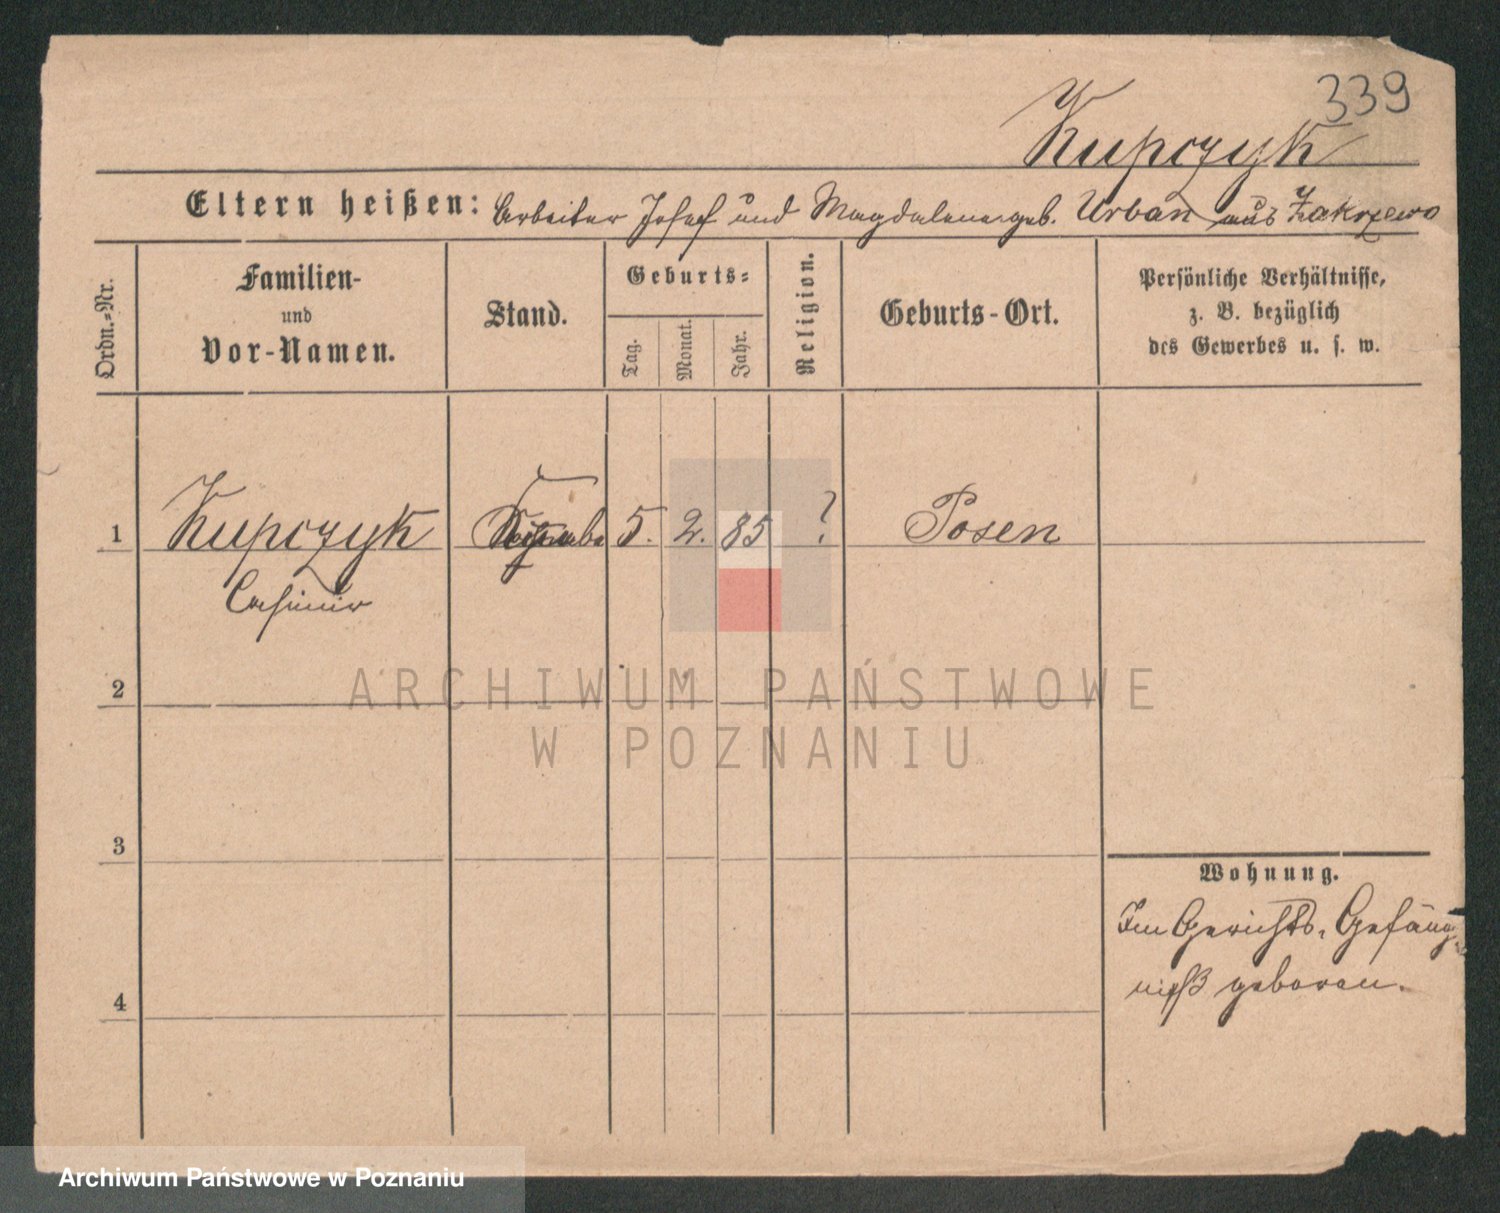 339
Kupczyk
Eltern heißen: Arbeiter Josef und Magdalena geb. Urban aus Zakrzewo
Ordn.-Nr.
Familien-
und
Vor-Namen.
Stand.
Geburts-
Tag.
Monat.
Jahr.
Religion.
Geburts-Ort.
Persönliche Verhältnisse,
z. B. bezüglich
des Gewerbes u. s. w.
1 Kupczyk 5. 2. 85 ? Posen
Casimir
2
ARCHIWUM PAŃSTWOWE
W POZNANIU
3
Wohnung.
Im Gerichts-Gefäng-
niß geboren.
4
Archiwum Państwowe w Poznaniu